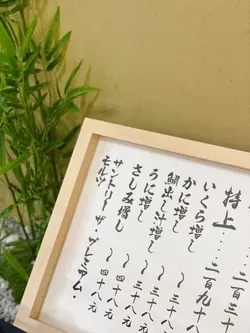 特上……二百九十八
いくら増し
かに増し 〜 三十
鯛出し汁増し 〜 三十八
うに増し 〜 三十八元
さしみ増し 〜 四十八元
サントリー ザ・プレミアム・
モルツ 〜 四十八元